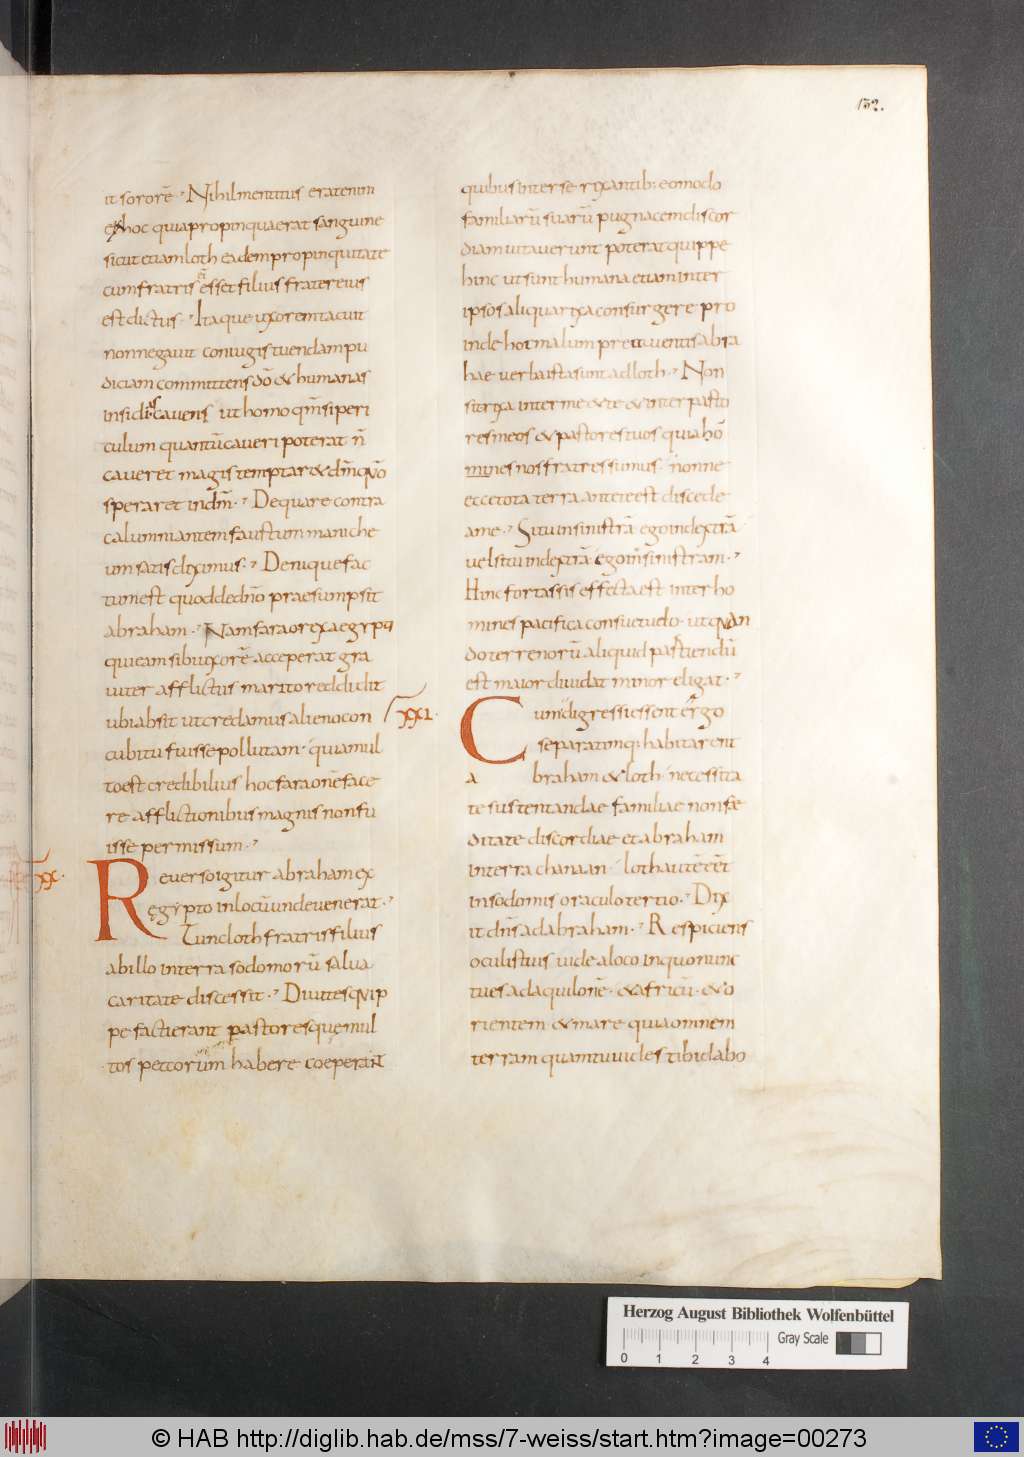 132.
it sororē· Nihil mentitus erat enim
& hoc quia propinqua erat sanguine
sicut etiam loth eadem propinquitate
cum fratris esset filius frater eius
est dictus· Itaque uxorem tacuit
non negauit coniugis tuendam pu
diciam committens dō & humanas
insidias cauens ut homo qm̄ si peri
culum quantū caueri poterat n̄
caueret magis temptar& dm̄ quā
speraret in dm̄· De qua re contra
calumniantem faustum maniche
um satis diximus· Denique fac
tum est quod de dn̄o praesumpsit
abraham· Nam farao rex aegypti
qui eam sibi uxorē acceperat gra
uiter afflictus marito reddidit
ubi absit ut credamus alieno con
cubitu fuisse pollutam· quia mul
to est credibilius hoc faraonē face
re afflictionibus magnis non fu
isse permissum·
xx·
Reuerso igitur abraham ex
ęgypto in locū unde uenerat·
Tunc loth fratris filius
ab illo in terra sodomorū salua
caritate discessit· Diuites quip
pe facti erant pastoresque mul
tos pecorum habere coeperant
quibus inter se rixantib: eo modo
familiarū suarū pugnacem discor
diam uitauerunt poterat quippe
hinc ut sunt humana etiam inter
ipsos aliqua rixa consurgere pro
inde hoc malum preuuentis abra
hae uerba ista sunt ad loth· Non
sit rixa inter me & te & inter pasto
res meos & pastores tuos quia ho
mines nos fratres sumus· nonne
ecce tota terra ante te est discede
a me· Si tu in sinistrā ego in dextrā
uel si tu in dextrā ego in sinistram·
Hinc fortassis effecta est inter ho
mines pacifica consuetudo· ut quan
do terrenorū aliquid partiendū
est maior diuidat minor eligat·
xxi·
Cum digressi essent ergo
separatimq; habitarent
abraham & loth necessita
te sustentandae familiae non fe
ditate discordiae et abraham
in terra chanaan loth autē eēt
in sodomis oraculo tertio· Dix
it dn̄s ad abraham· Respiciens
oculis tuis uide a loco in quo nunc
tu es ad aquilonē· & africū· & o
rientem & mare quia omnem
terram quam tu uides tibi dabo
Herzog August Bibliothek Wolfenbüttel
Gray Scale
0 1 2 3 4
© HAB http://diglib.hab.de/mss/7-weiss/start.htm?image=00273